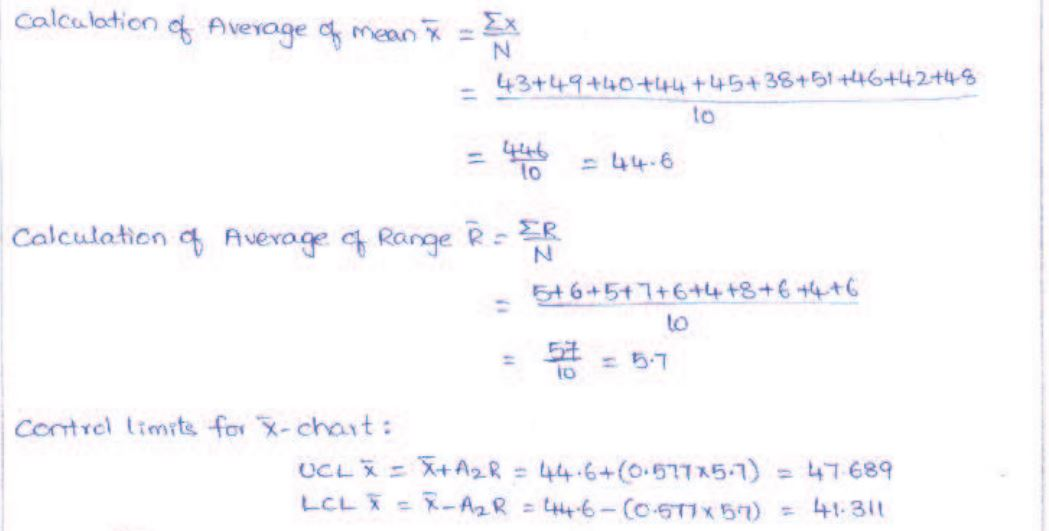 Calculation of Average of mean x̄ = Σx/N
= 43+49+40+44+45+38+51+46+42+48/10
= 446/10 = 44.6
Calculation of Average of Range R̄ = ΣR/N
= 5+6+5+7+6+4+8+6+4+6/10
= 57/10 = 5.7
Control limits for x̄-chart:
UCL x̄ = x̄+A₂R = 44.6+(0.577x5.7) = 47.689
LCL x̄ = x̄-A₂R = 44.6-(0.577x57) = 41.311